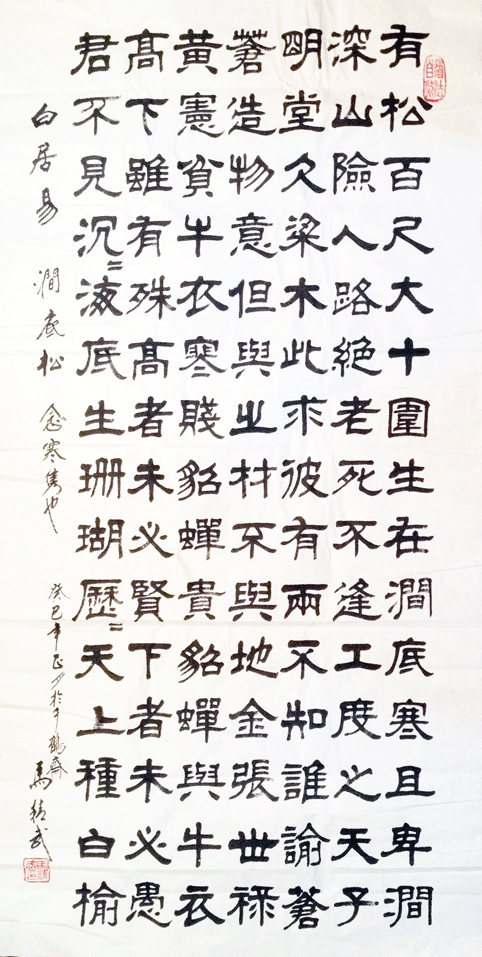 有松百尺大十圍生在澗底寒且卑澗
深山險人路絕老死不逢工度之天子
明堂欠梁木此求彼有兩不知誰諭蒼
蒼造物意但與之材不與地金張世祿
黃憲貧牛衣寒賤貂蟬貴貂蟬與牛衣
髙下雖有殊髙者未必賢下者未必愚
君不見沉〻海底生珊瑚歷〻天上種白榆
白居易 澗底松 念寒雋也
癸巳年 於 馬 武